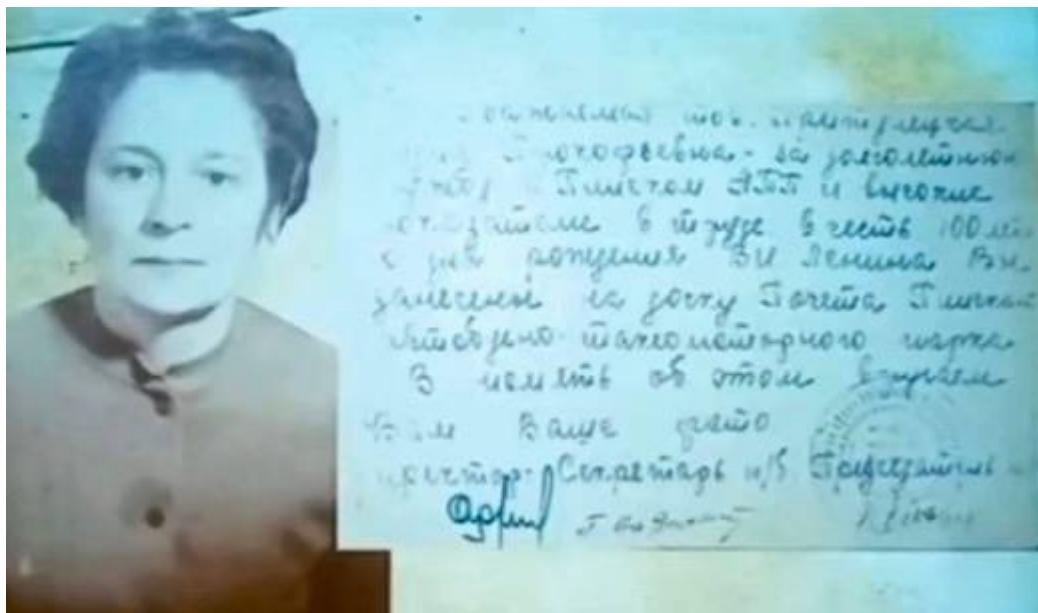 тов.
Прокофьевна - за долголетнюю
в Пинском АТП и высокие
показатели в труде в честь 100 лет
со дня рождения В И Ленина Вы
занесены на доску Почета Пинского
автобусно-таксомоторного парка
В память об этом вручаем
Вам Ваше фото
Директор Секретарь п/б Председатель